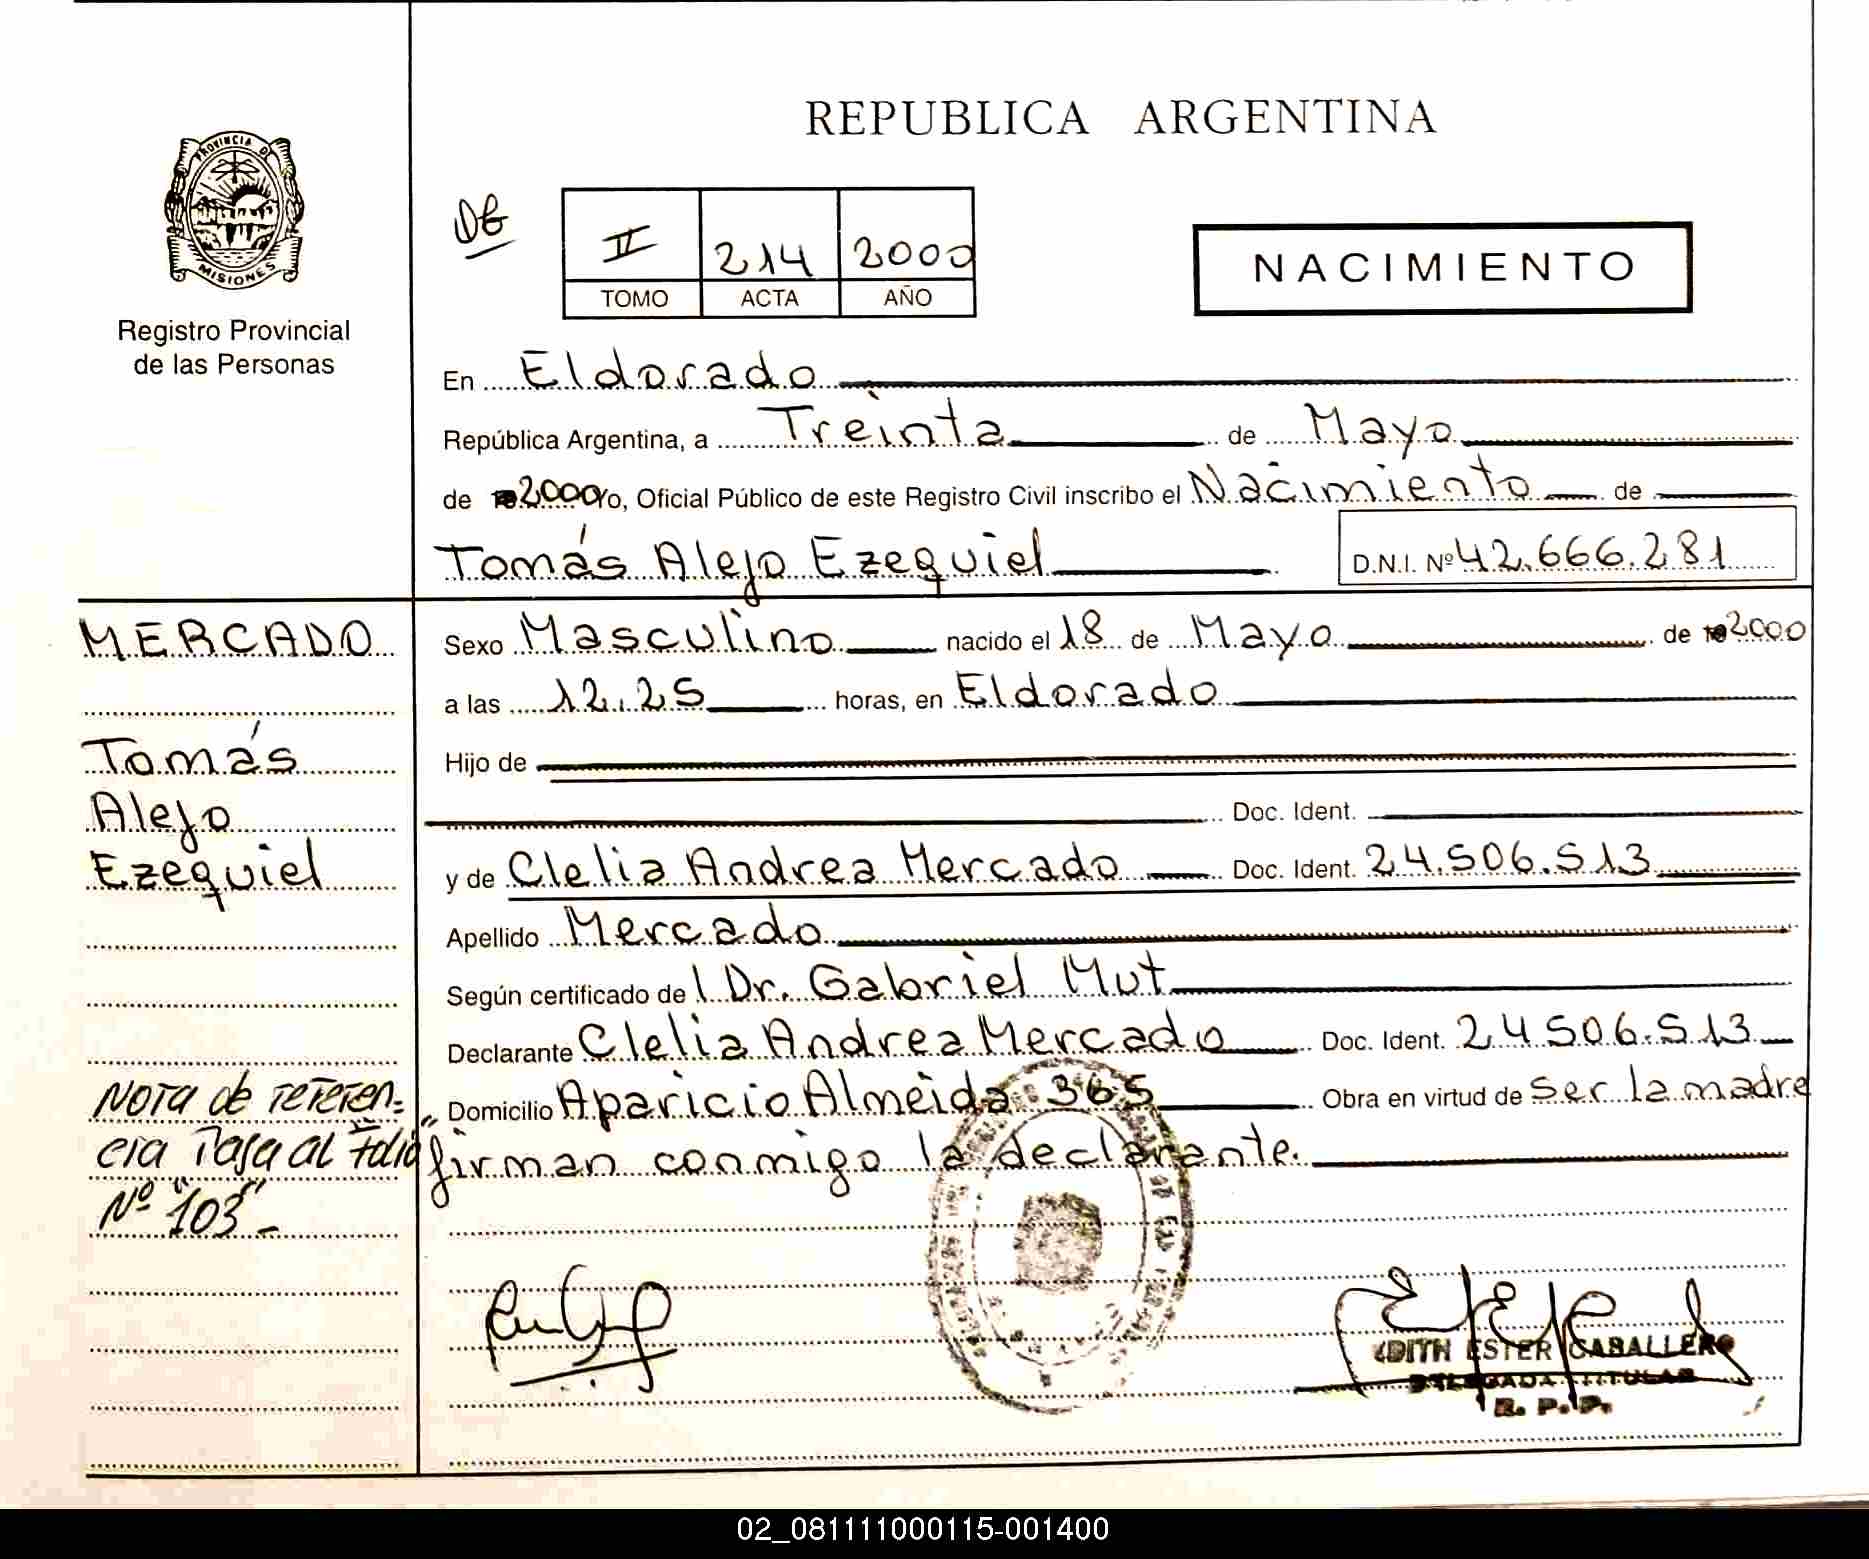 REPUBLICA ARGENTINA
PROVINCIA DE
MISIONES
Registro Provincial
de las Personas
II 214 2000
TOMO ACTA AÑO
NACIMIENTO
En Eldorado
República Argentina, a Treinta de Mayo
de 2000 yo, Oficial Público de este Registro Civil inscribo el Nacimiento de
Tomás Alejo Ezequiel D.N.I. Nº 42.666.281
MERCADO
Tomás
Alejo
Ezequiel
Nota de referen=
cia pasa al folio
Nº "103"-
Sexo Masculino nacido el 18 de Mayo de 2000
a las 12.25 horas, en Eldorado
Hijo de
Doc. Ident.
y de Clelia Andrea Mercado Doc. Ident. 24.506.513
Apellido Mercado
Según certificado de l Dr. Gabriel Mut
Declarante Clelia Andrea Mercado Doc. Ident. 24506.513
Domicilio Aparicio Almeida 365 Obra en virtud de ser la madre
firman conmigo la declarante.
EDITH ESTER CABALLERO
DELEGADA TITULAR
R. P. P.
02_081111000115-001400